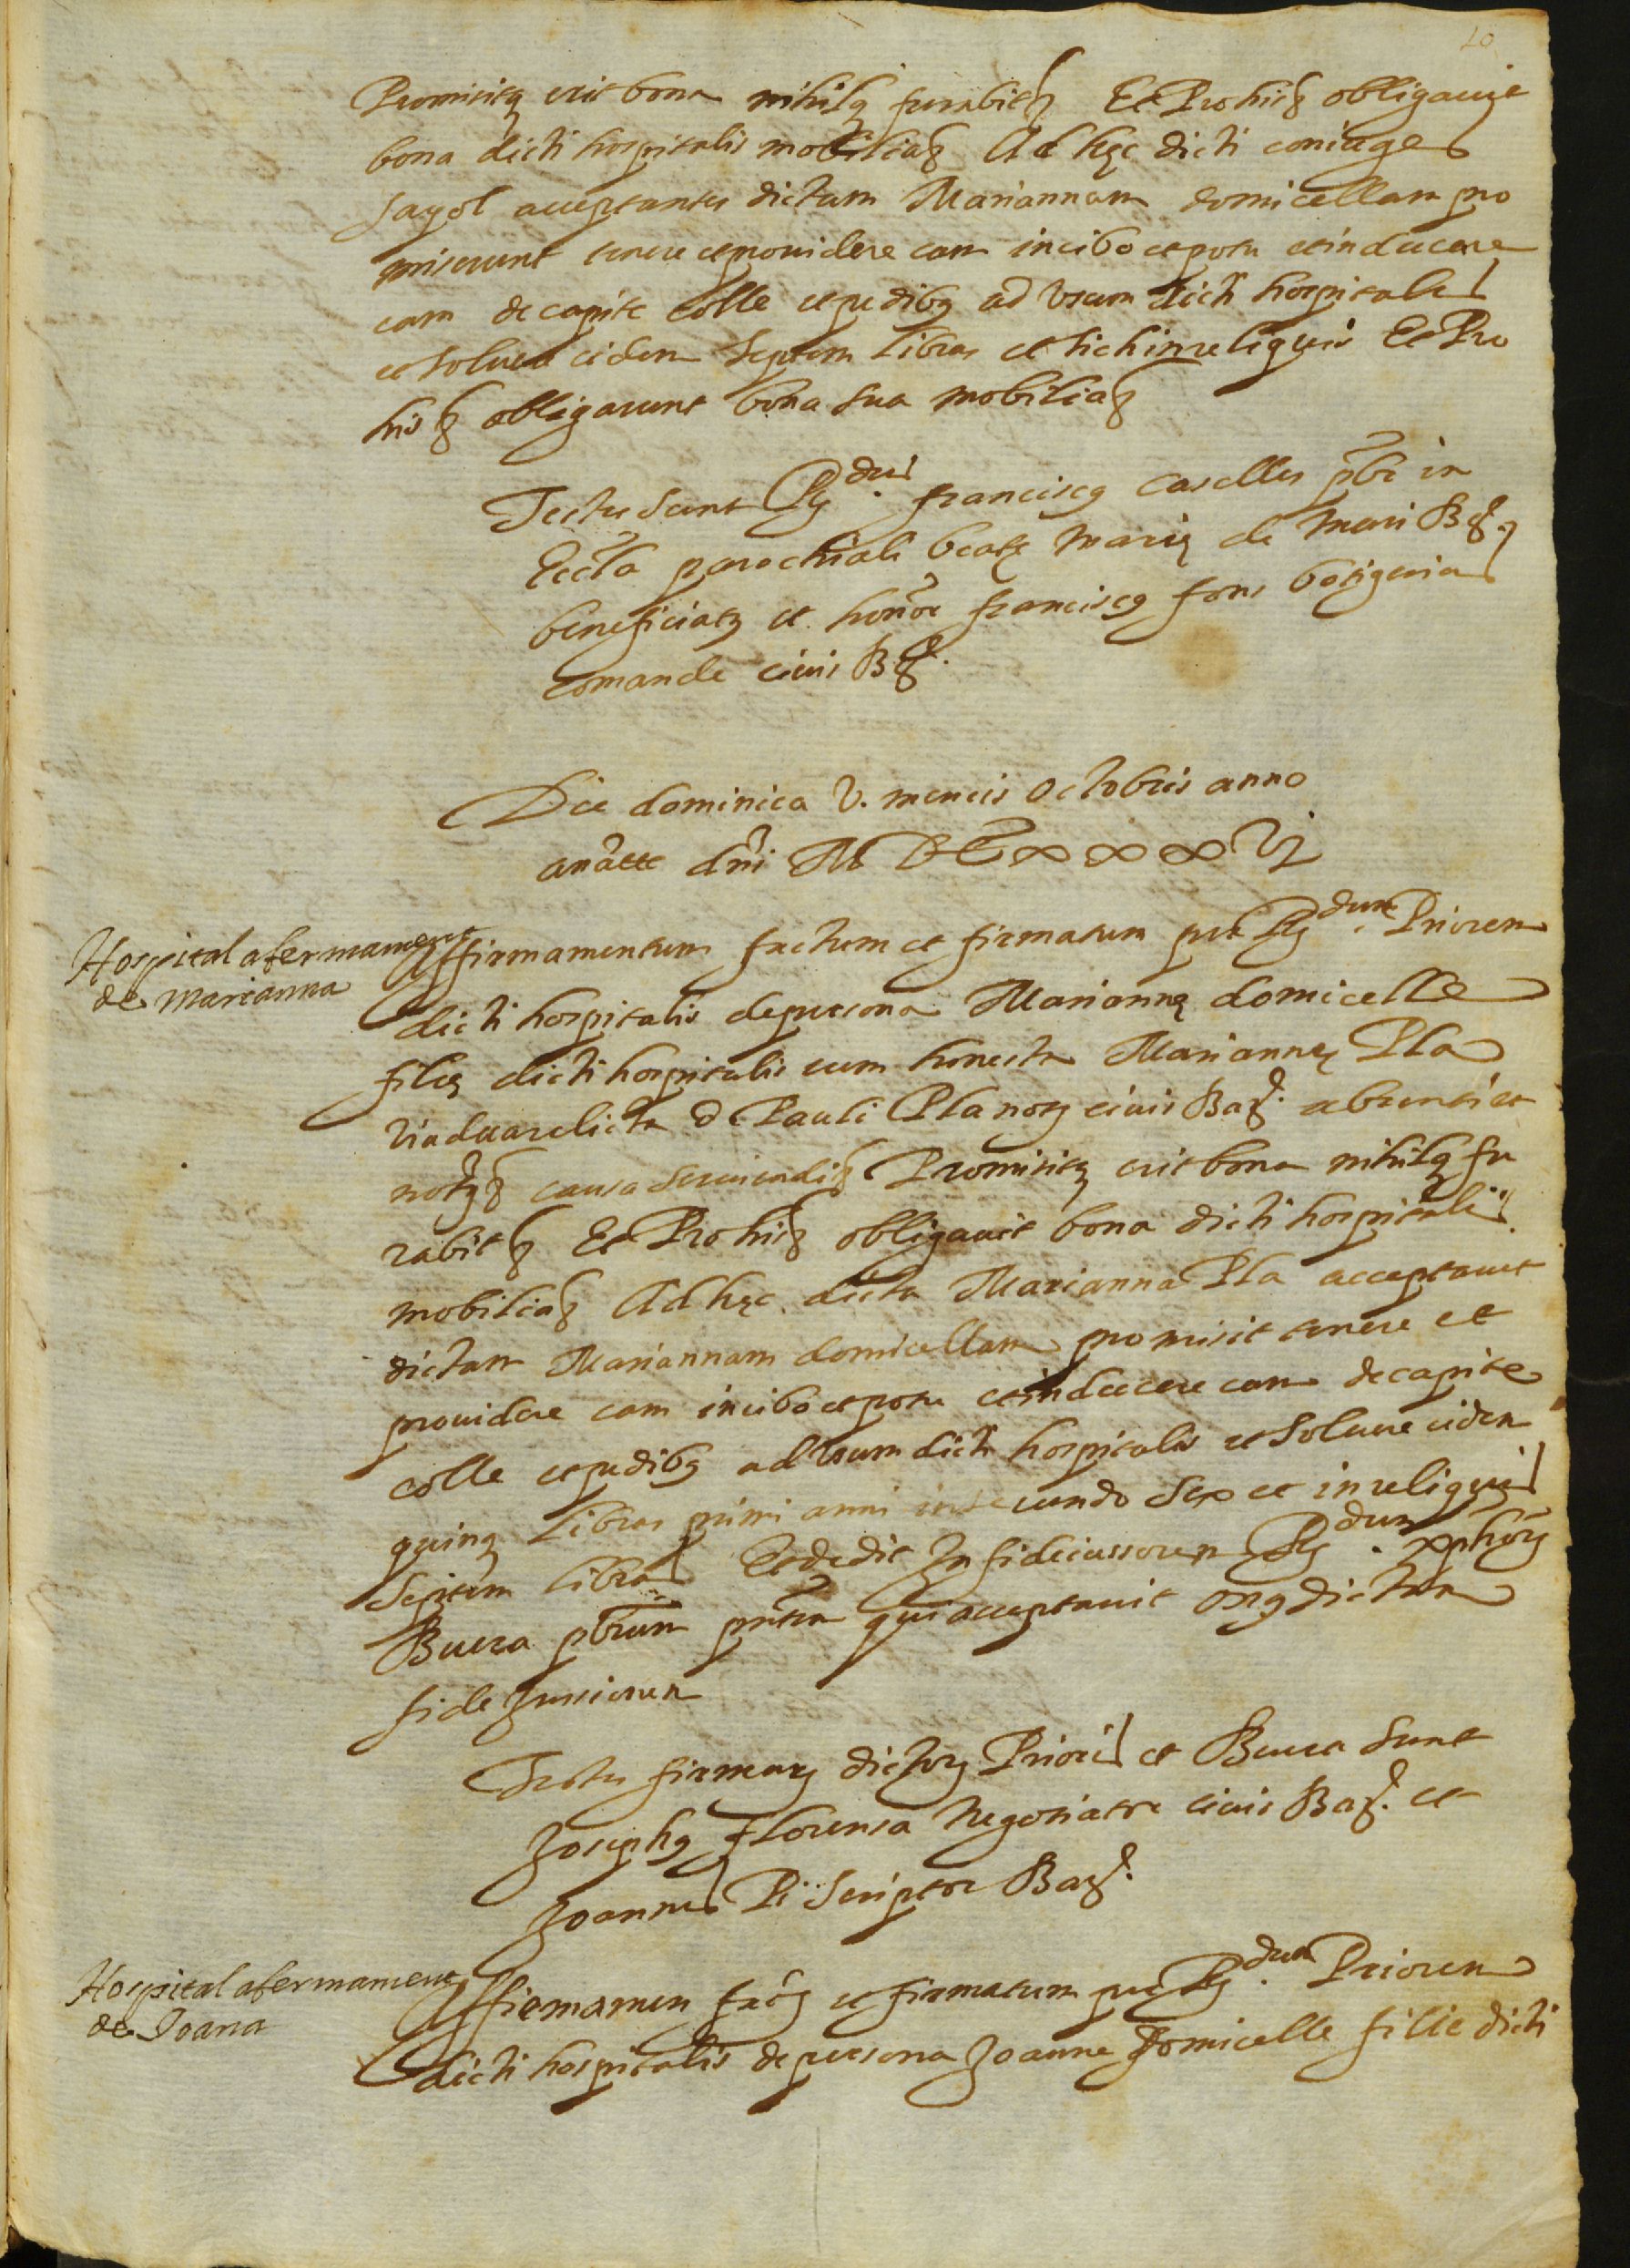 10
Promisitq erit bona nihilq furabit&ᷓ Et Pro his&ᷓ obligavit
bona dicti hospitalis mobilia&ᷓ Ad hęc dicti coniuges
Sayol acceptantes dictam Mariannam domicellam pro
miserunt tenere et providere eam in cibo et potu et inducere
eam de capite colle et pedibq ad usum dicti hospitalis
et solvere eidem septem libras et sich in reliquis Et Pro
his&ᷓ obligarunt bona sua mobilia&ᷓ
Testes sunt Rdus franciscq Caselles pbr in
Eccla parochiali beatę Marię de Mari Bar.
beneficiatq et honor franciscq fons botiguia
comande civis Bar.
Die dominica V. mensis Octobris anno
anatte dni M D C x x x VI
Hospital afermament
de Marianna
Affirmamentum factum et firmatum per Rdum Priorem
dicti hospitalis de persona Mariannę domicelle
filię dicti hospitalis cum honesta Mariannę Pla
vidua relicta d Pauli Pla notq civis Bar. absentis et
notq&ᷓ causa serviendi&ᷓ Promisitq erit bona nihilq fu
rabit&ᷓ Et Pro his&ᷓ obligavit bona dicti hospitalis
mobilia&ᷓ Ad hęc dicta Marianna Pla acceptavit
dictam Mariannam domicellam promisit tenere et
providere eam in cibo et potu et inducere eam de capite
colle et pedibq ad usum dicti hospitalis et solvere eidem
quinq libras primi anni in secundo sex et in reliquis
septem libras Et dedit in fideiussorem Rdum xphorq
Buera pbrum pntem qui acceptavit onq dictum
fidejussiorem
Testes firmarq dictorq Prioris et Buera sunt
Josephq florensa Negotiator civis Bar. et
Joannes Pi Scriptor Bar.
Hospital afermament
de Joana
Affirmamen factq et firmatum per Rdum Priorem
dicti hospitalis de persona Joanne Domicelle filie dicti